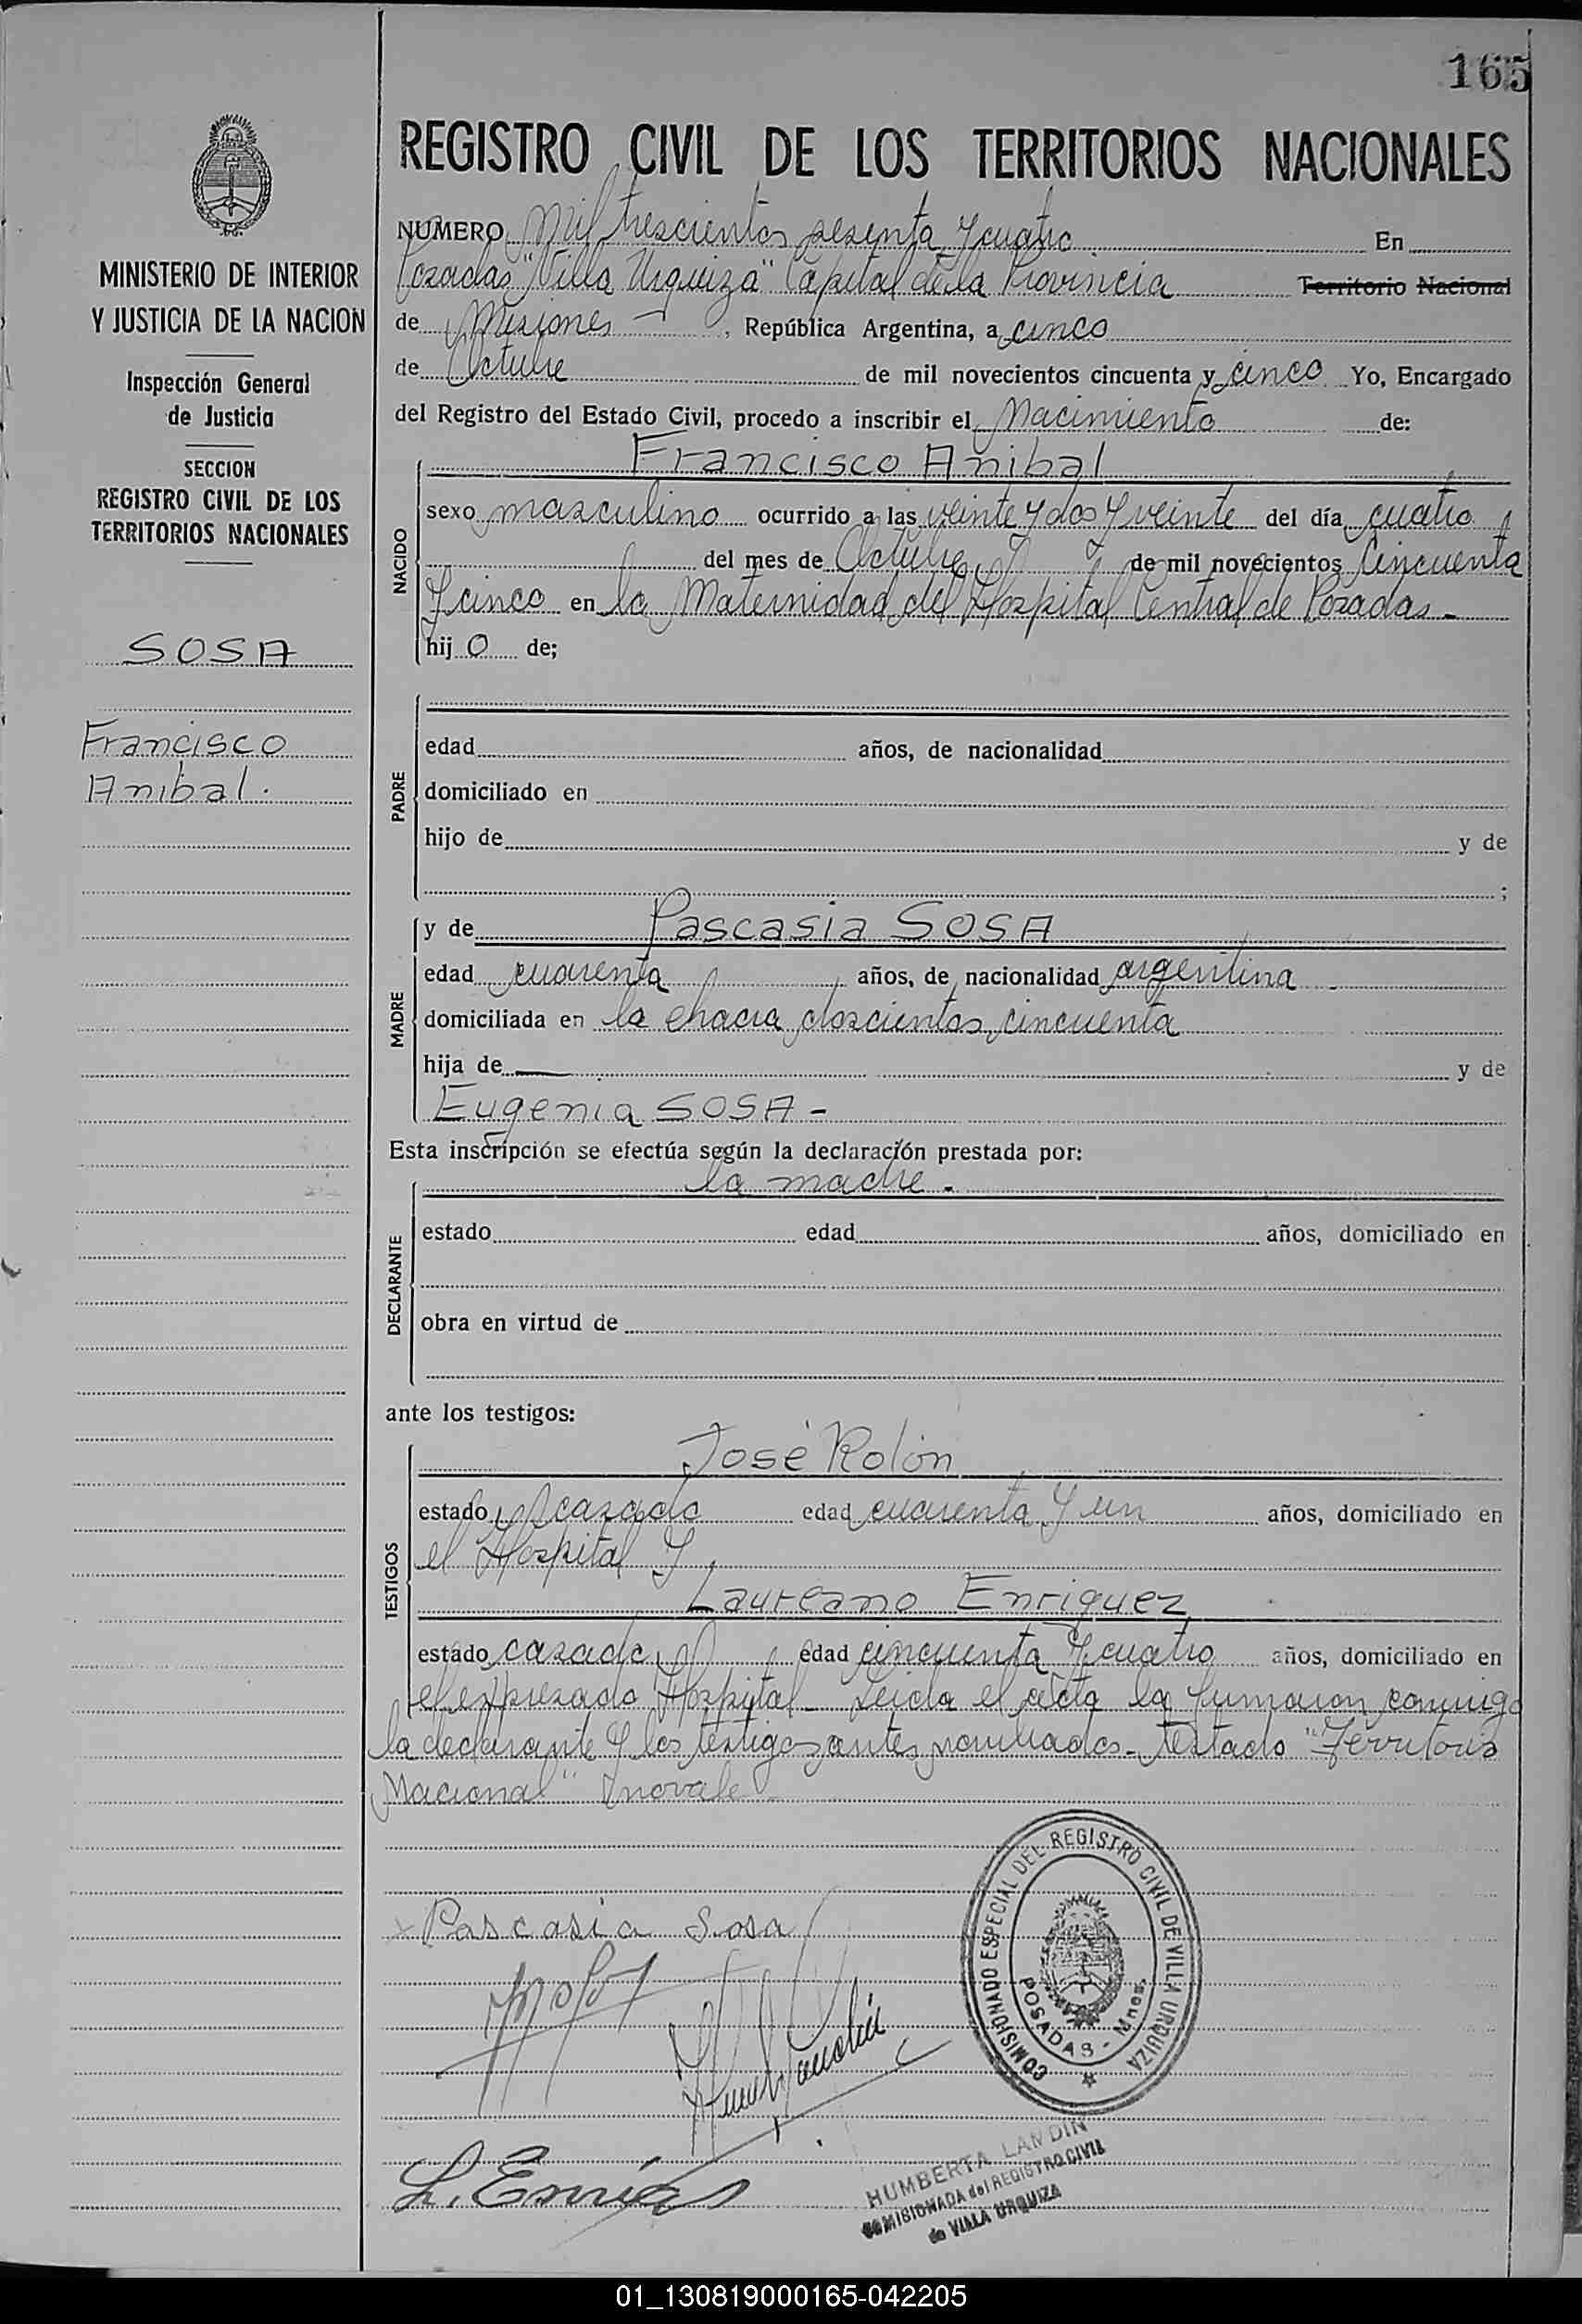 165
REGISTRO CIVIL DE LOS TERRITORIOS NACIONALES
MINISTERIO DE INTERIOR
Y JUSTICIA DE LA NACION
Inspección General
de Justicia
SECCION
REGISTRO CIVIL DE LOS
TERRITORIOS NACIONALES
SOSA
Francisco
Anibal.
NUMERO Mil trescientos sesenta y cuatro En
Posadas "Villa Urquiza" Capital de la Provincia Territorio Nacional
de Misiones — , República Argentina, a cinco
de Octubre de mil novecientos cincuenta y cinco Yo, Encargado
del Registro del Estado Civil, procedo a inscribir el Nacimiento de:
NACIDO
Francisco Anibal
sexo masculino ocurrido a las veinte y dos y veinte del día cuatro
del mes de Octubre de mil novecientos Cincuenta
y cinco en la Maternidad del Hospital Central de Posadas -
hij o de;
PADRE
edad años, de nacionalidad
domiciliado en
hijo de y de
;
MADRE
y de Pascasia SOSA
edad cuarenta años, de nacionalidad argentina
domiciliada en la chacra doscientos cincuenta
hija de — y de
Eugenia SOSA -
Esta inscripción se efectúa según la declaración prestada por:
DECLARANTE
la madre -
estado edad años, domiciliado en
obra en virtud de
ante los testigos:
TESTIGOS
José Rolón
estado casado edad cuarenta y un años, domiciliado en
el Hospital y
Laureano Enriquez
estado casado edad cincuenta y cuatro años, domiciliado en
el expresado Hospital - Leida el acta la firmaron conmigo
la declarante y los testigos antes nombrados - Testado "Territorio
Nacional" No vale
x Pascasia Sosa
COMISIONADO ESPECIAL DEL REGISTRO CIVIL DE VILLA URQUIZA
POSADAS - Mnes.
HUMBERTA LANDIN
COMISIONADA del REGISTRO CIVIL
de VILLA URQUIZA
01_130819000165-042205